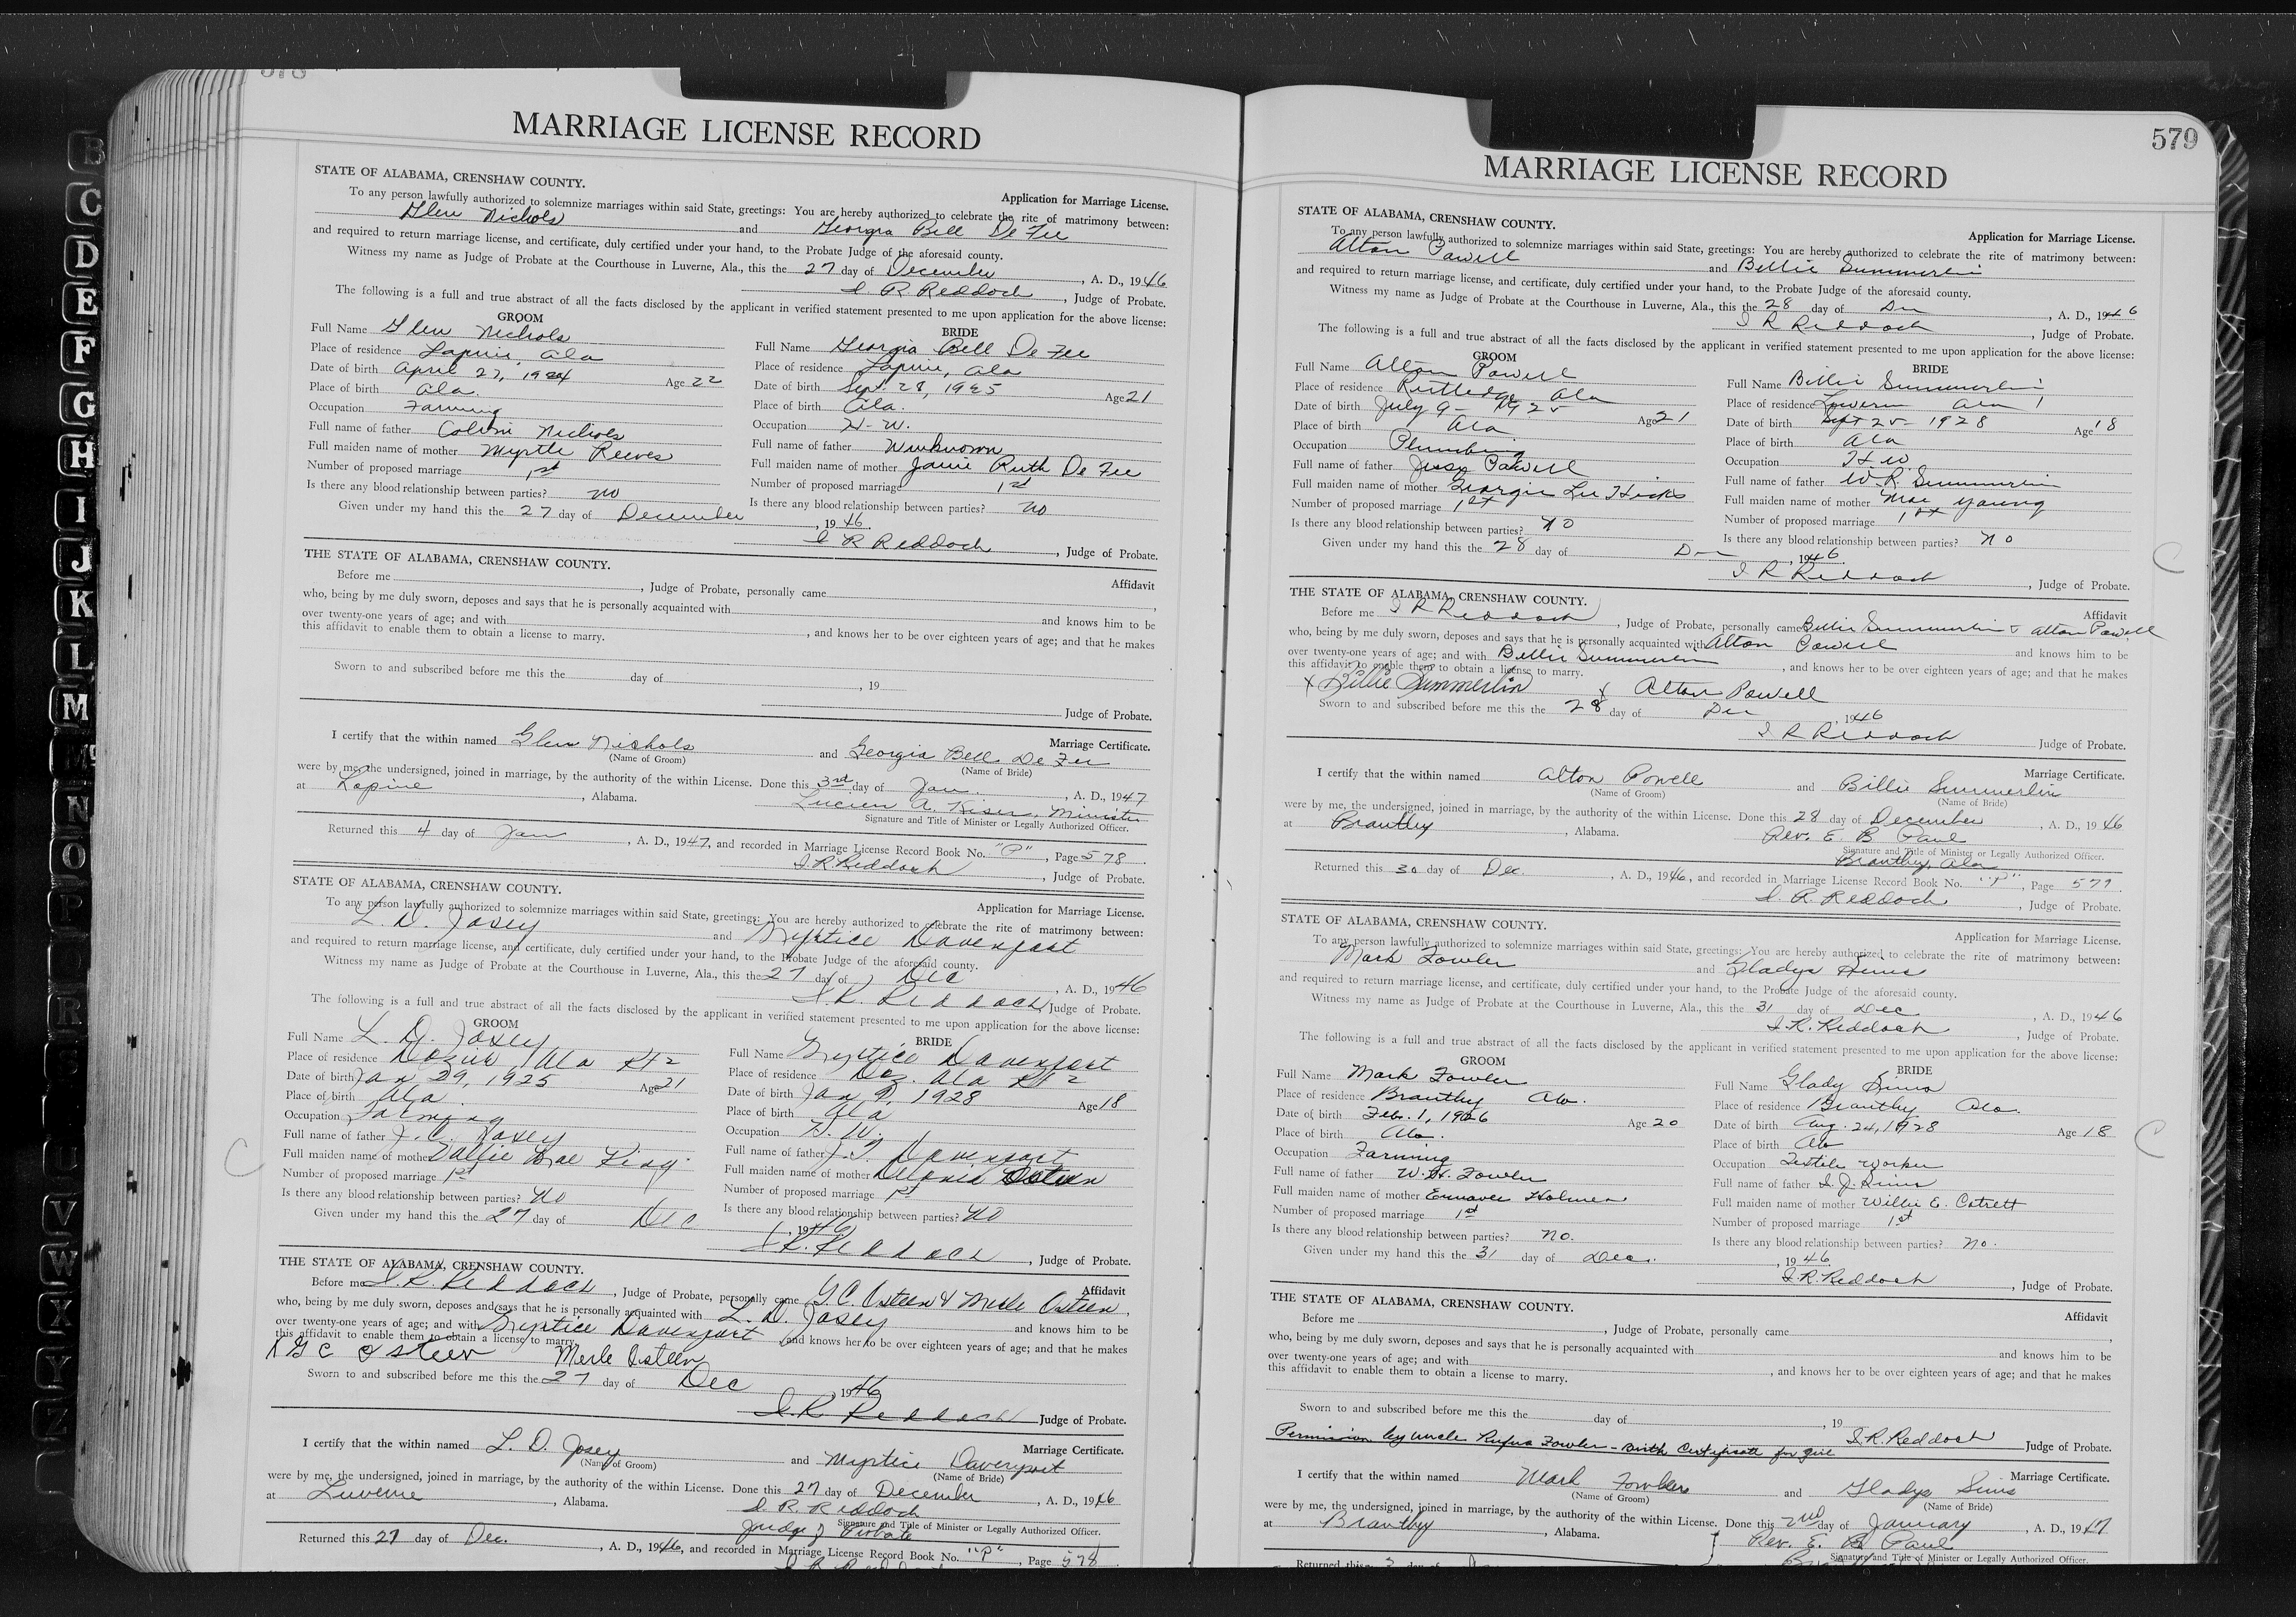 578
MARRIAGE LICENSE RECORD
STATE OF ALABAMA, CRENSHAW COUNTY.
Application for Marriage License.
To any person lawfully authorized to solemnize marriages within said State, greetings: You are hereby authorized to celebrate the rite of matrimony between:
Glen Nichols and Georgia Bell De Fee
and required to return marriage license, and certificate, duly certified under your hand, to the Probate Judge of the aforesaid county.
Witness my name as Judge of Probate at the Courthouse in Luverne, Ala., this the 27 day of December, A. D., 1946
I. R. Reddoch, Judge of Probate.
The following is a full and true abstract of all the facts disclosed by the applicant in verified statement presented to me upon application for the above license:
GROOM
Full Name Glen Nichols
Place of residence Lapine, Ala
Date of birth April 27, 1924 Age 22
Place of birth Ala.
Occupation Farming
Full name of father Nichols
Full maiden name of mother Myrtle Reeves
Number of proposed marriage 1st
Is there any blood relationship between parties? no
BRIDE
Full Name Georgia Bell De Fee
Place of residence Lapine, Ala
Date of birth Sept. 28, 1925 Age 21
Place of birth Ala.
Occupation H. W.
Full name of father
Full maiden name of mother Janie Ruth De Fee
Number of proposed marriage 1st
Is there any blood relationship between parties? no
Given under my hand this the 27 day of December, 1946
I R Reddoch, Judge of Probate.
THE STATE OF ALABAMA, CRENSHAW COUNTY.
Affidavit
Before me , Judge of Probate, personally came ,
who, being by me duly sworn, deposes and says that he is personally acquainted with and knows him to be
over twenty-one years of age; and with , and knows her to be over eighteen years of age; and that he makes
this affidavit to enable them to obtain a license to marry.
Sworn to and subscribed before me this the day of , 19
Judge of Probate.
Marriage Certificate.
I certify that the within named Glen Nichols and Georgia Bell De Fee
(Name of Groom) (Name of Bride)
were by me, the undersigned, joined in marriage, by the authority of the within License. Done this 3rd day of Jan., A. D., 1947
at Lapine, Alabama. Lucien A. Kiser, Minister
Signature and Title of Minister or Legally Authorized Officer.
Returned this 4 day of Jan, A. D., 1947, and recorded in Marriage License Record Book No. "P", Page 578.
I. R. Reddoch, Judge of Probate.
STATE OF ALABAMA, CRENSHAW COUNTY.
Application for Marriage License.
To any person lawfully authorized to solemnize marriages within said State, greetings: You are hereby authorized to celebrate the rite of matrimony between:
L. D. Josey and Myrtice Davenport
and required to return marriage license, and certificate, duly certified under your hand, to the Probate Judge of the aforesaid county.
Witness my name as Judge of Probate at the Courthouse in Luverne, Ala., this the 27 day of Dec, A. D., 1946
I. R. Reddoch, Judge of Probate.
The following is a full and true abstract of all the facts disclosed by the applicant in verified statement presented to me upon application for the above license:
GROOM
Full Name L. D. Josey
Place of residence Dozier, Ala Rt 2
Date of birth Jan 29, 1925 Age 21
Place of birth Ala.
Occupation Farming
Full name of father J. C. Josey
Full maiden name of mother Mae King
Number of proposed marriage 1st
Is there any blood relationship between parties? no
BRIDE
Full Name Myrtice Davenport
Place of residence Doz. Ala Rt 2
Date of birth Jan 9, 1928 Age 18
Place of birth Ala
Occupation H. W.
Full name of father Davenport
Full maiden name of mother Osteen
Number of proposed marriage 1st
Is there any blood relationship between parties? no
Given under my hand this the 27 day of Dec, 1946
I. R. Reddoch, Judge of Probate.
THE STATE OF ALABAMA, CRENSHAW COUNTY.
Affidavit
Before me I. R. Reddoch, Judge of Probate, personally came G. C. Osteen & Merle Osteen,
who, being by me duly sworn, deposes and says that he is personally acquainted with L. D. Josey and knows him to be
over twenty-one years of age; and with Myrtice Davenport, and knows her to be over eighteen years of age; and that he makes
this affidavit to enable them to obtain a license to marry.
X G C Osteen Merle Osteen
Sworn to and subscribed before me this the 27 day of Dec, 1946
I. R. Reddoch Judge of Probate.
Marriage Certificate.
I certify that the within named L. D. Josey and Myrtice Davenport
(Name of Groom) (Name of Bride)
were by me, the undersigned, joined in marriage, by the authority of the within License. Done this 27 day of December, A. D., 1946
at Luverne, Alabama. I. R. Reddoch
Judge of Probate
Signature and Title of Minister or Legally Authorized Officer.
Returned this 27 day of Dec., A. D., 1946, and recorded in Marriage License Record Book No. "P", Page 578
579
MARRIAGE LICENSE RECORD
STATE OF ALABAMA, CRENSHAW COUNTY.
Application for Marriage License.
To any person lawfully authorized to solemnize marriages within said State, greetings: You are hereby authorized to celebrate the rite of matrimony between:
Alton Powell and Billie Summerlin
and required to return marriage license, and certificate, duly certified under your hand, to the Probate Judge of the aforesaid county.
Witness my name as Judge of Probate at the Courthouse in Luverne, Ala., this the 28 day of Dec, A. D., 1946
I R Reddoch, Judge of Probate.
The following is a full and true abstract of all the facts disclosed by the applicant in verified statement presented to me upon application for the above license:
GROOM
Full Name Alton Powell
Place of residence Rutledge Ala
Date of birth July 9- 1925 Age 21
Place of birth Ala
Occupation Plumbing
Full name of father Jess Powell
Full maiden name of mother Georgia Lee Hicks
Number of proposed marriage 1st
Is there any blood relationship between parties? no
BRIDE
Full Name Billie Summerlin
Place of residence Luverne Ala
Date of birth Sept 25- 1928 Age 18
Place of birth Ala
Occupation H W
Full name of father W. R. Summerlin
Full maiden name of mother Mae Young
Number of proposed marriage 1st
Is there any blood relationship between parties? no
Given under my hand this the 28 day of Dec, 1946
I R Reddoch, Judge of Probate.
THE STATE OF ALABAMA, CRENSHAW COUNTY.
Affidavit
Before me I R Reddoch, Judge of Probate, personally came Billie Summerlin & Alton Powell
who, being by me duly sworn, deposes and says that he is personally acquainted with Alton Powell and knows him to be
over twenty-one years of age; and with Billie Summerlin, and knows her to be over eighteen years of age; and that he makes
this affidavit to enable them to obtain a license to marry.
x Billie Summerlin x Alton Powell
Sworn to and subscribed before me this the 28 day of Dec, 1946
I R Reddoch Judge of Probate.
Marriage Certificate.
I certify that the within named Alton Powell and Billie Summerlin
(Name of Groom) (Name of Bride)
were by me, the undersigned, joined in marriage, by the authority of the within License. Done this 28 day of December, A. D., 1946
at Brantley, Alabama. Rev. E. B Paul
Signature and Title of Minister or Legally Authorized Officer.
Brantley, Ala
Returned this 30 day of Dec., A. D., 1946, and recorded in Marriage License Record Book No. "P", Page 579.
I. R. Reddoch, Judge of Probate.
STATE OF ALABAMA, CRENSHAW COUNTY.
Application for Marriage License.
To any person lawfully authorized to solemnize marriages within said State, greetings: You are hereby authorized to celebrate the rite of matrimony between:
Mark Fowler and Gladys Sims
and required to return marriage license, and certificate, duly certified under your hand, to the Probate Judge of the aforesaid county.
Witness my name as Judge of Probate at the Courthouse in Luverne, Ala., this the 31 day of Dec, A. D., 1946
I. R. Reddoch, Judge of Probate.
The following is a full and true abstract of all the facts disclosed by the applicant in verified statement presented to me upon application for the above license:
GROOM
Full Name Mark Fowler
Place of residence Brantley Ala.
Date of birth Feb. 1, 1926 Age 20
Place of birth Ala.
Occupation Farming
Full name of father W. H. Fowler
Full maiden name of mother Holmes
Number of proposed marriage 1st
Is there any blood relationship between parties? no.
BRIDE
Full Name Glady Sims
Place of residence Brantley Ala.
Date of birth Aug. 24, 1928 Age 18
Place of birth Ala
Occupation Textile Worker
Full name of father I. J. Sims
Full maiden name of mother Willie E.
Number of proposed marriage 1st
Is there any blood relationship between parties? no.
Given under my hand this the 31 day of Dec., 1946.
I. R. Reddoch, Judge of Probate.
THE STATE OF ALABAMA, CRENSHAW COUNTY.
Affidavit
Before me , Judge of Probate, personally came ,
who, being by me duly sworn, deposes and says that he is personally acquainted with and knows him to be
over twenty-one years of age; and with , and knows her to be over eighteen years of age; and that he makes
this affidavit to enable them to obtain a license to marry.
Sworn to and subscribed before me this the day of , 19
Permission by uncle Rufus Fowler - Birth Certificate for girl I. R. Reddoch Judge of Probate.
Marriage Certificate.
I certify that the within named Mark Fowler and Gladys Sims
(Name of Groom) (Name of Bride)
were by me, the undersigned, joined in marriage, by the authority of the within License. Done this 2nd day of January, A. D., 1947
at Brantley, Alabama. Rev. E. B. Paul
Signature and Title of Minister or Legally Authorized Officer.
Returned this 3 day of
B
C
D
E
F
G
H
I
J
K
L
M
Mc
N
O
P
R
V
W
X
Y
Z